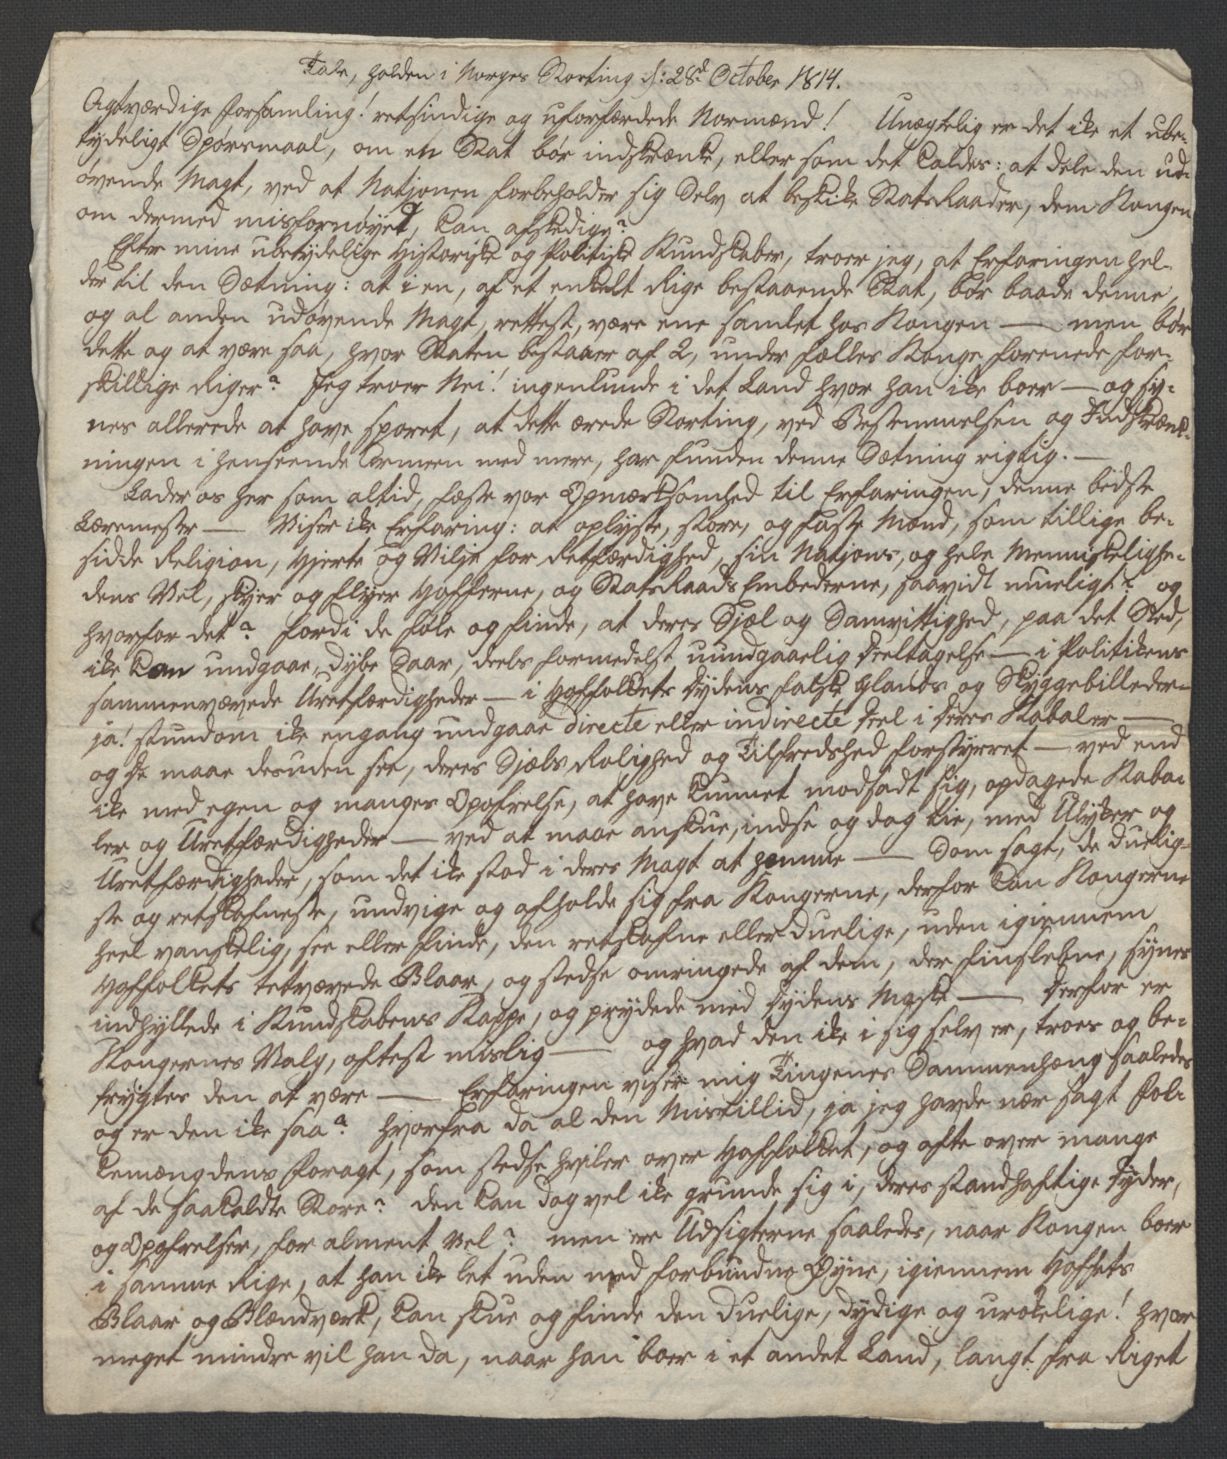 Tale, holden i Norges Storting d: 28d. October 1814.
Agtværdige Forsamling! retsindige og uforfærdede Normænd! Unægtelig er det ike et ube-
tydeligt Spørsmaal, om en Stat bør indskrænke, eller som det kaldes: at dele den ud-
øvende Magt, ved at Natjonen forbeholder sig Selv at beskike StatsRaader, dem Kongen
om dermed misfornøyet, kan afskedige?
Efter mine ubetydelige Historiske og Politiske Kundskaber, troer jeg, at Erfaringen hel-
der til den Sætning: at i en, af et enkelt Rige bestaaende Stat, bør baade denne,
og al anden udøvende Magt, rettest, være ene samlet hos Kongen — men bør
dette og at være saa, hvor Staten bestaaer af 2, under fælles Konge forenede for-
skillige Riger? Jeg troer Nei! ingenlunde i det Land hvor han ike boer — og sy-
nes allerede at have sporet, at dette ærede Storting, ved Bestemmelsen og Indskrænk-
ningen i henseende Armeen med mere, har funden denne Sætning rigtig. —
Lader os her som altid, fæste vor Opmærksomhed til Erfaringen, denne bedste
Læremester — Viser ike Erfaring: at oplyste, store, og faste Mænd, som tillige be-
sidde Religion, Hjerte og Vilje for Retfærdighed, sin Natjons, og hele Menneskelighe-
dens Vel, skyer og flyer Hofferne, og StatsRaadsEmbederne, saavidt mueligt? og
hvorfor det? fordi de føle og finde, at deres Sjæl og Samvittighed, paa det Sted,
ike kan undgaae, dybe Saar, deels formedelst uundgaaelig Deeltagelse — i Politikens
sammenvævede Uretfærdigheder — i Hoffolkets Dydens falske Glands og Skyggebilleder —
ja! stundom ike engang undgaae directe eller indirecte Deel i deres Kabaler —
og de maae desuden see, deres Sjæls Rolighed og Tilfredshed forstyrret — ved end
ike med egen og manges Opofrelse, at have kunnet modsadt sig, opdagede Kaba-
ler og Uretfærdigheder — ved at maae anskue, indse og dog tie, med Ulyker og
Uretfærdigheder, som det ike stod i deres Magt at hemme — Som sagt, de duelig-
ste og retskafneste, undvige og afholde sig fra Kongerne, derfor kan Kongerne
heel vanskelig, see eller finde, den retskafne eller duelige, uden igiennem
Hoffolkets tetvævede Blaar, og stedse omringede af dem, der finslebne, synes
indhyllede i Kundskabens Kappe, og prydede med Dydens Maske — Derfor er
Kongernes Valg, oftest mislig — og hvad den ike i sig selv er, troes og be-
frygtes den at være — Erfaringen viser mig Tingenes Sammenhæng saaledes
og er den ike saa? hvorfra da al den Mistillid, ja jeg havde nær sagt Fol-
kemængdens Foragt, som stedse hviler over Hoffolket, og ofte over mange
af de saakaldte Store? den kan dog vel ike grunde sig i, deres standhaftige Dyder,
og Opofrelser, for alment Vel? men ere Udsigterne saaledes, naar Kongen boer
i samme Rige, at han ike let uden med forbundne Øyne, igiennem Hoffets
Blaar og Blændværk, kan skue og finde den duelige, dydige og urokelige! hvor
meget mindre vil han da, naar han boer i et andet Land, langt fra Riget